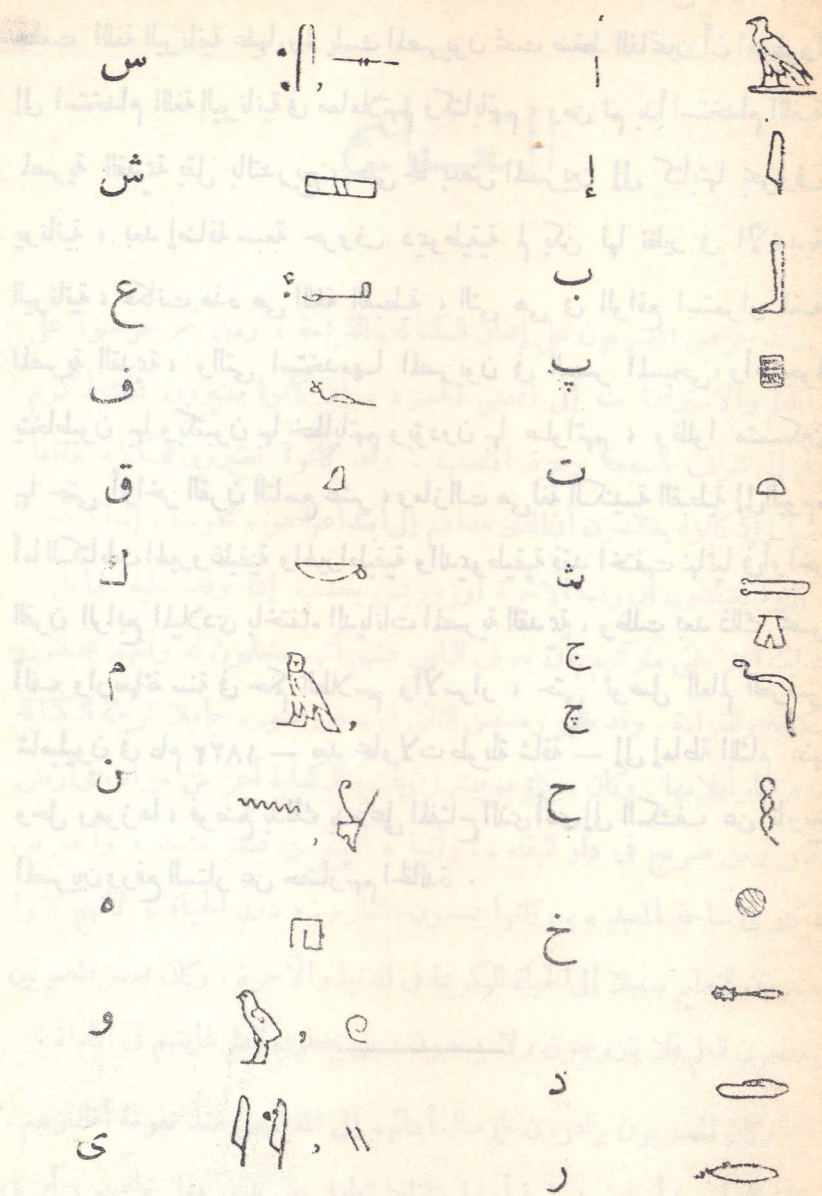 أ
إ
ب
پ
ت
ث
ج
چ
ح
خ
د
ر
س
ش
ع
ف
ق
ك
م
ن
ه
و
ى